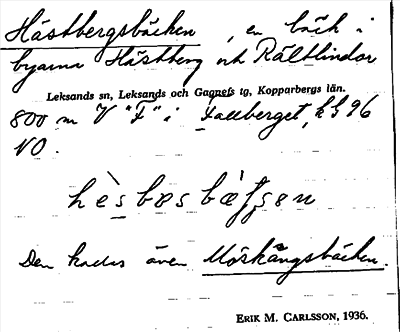 Hästbergsbäcken, en bäck i
byarna Hästberg och Rältlindor
Leksands sn, Leksands och Gagnefs tg, Kopparbergs län.
800 m V "F" i Faluberget, 96
NO.
hèsbæsbæ̀ssen
Den kallas även Mörkängsbäcken.
ERIK M. CARLSSON, 1936.